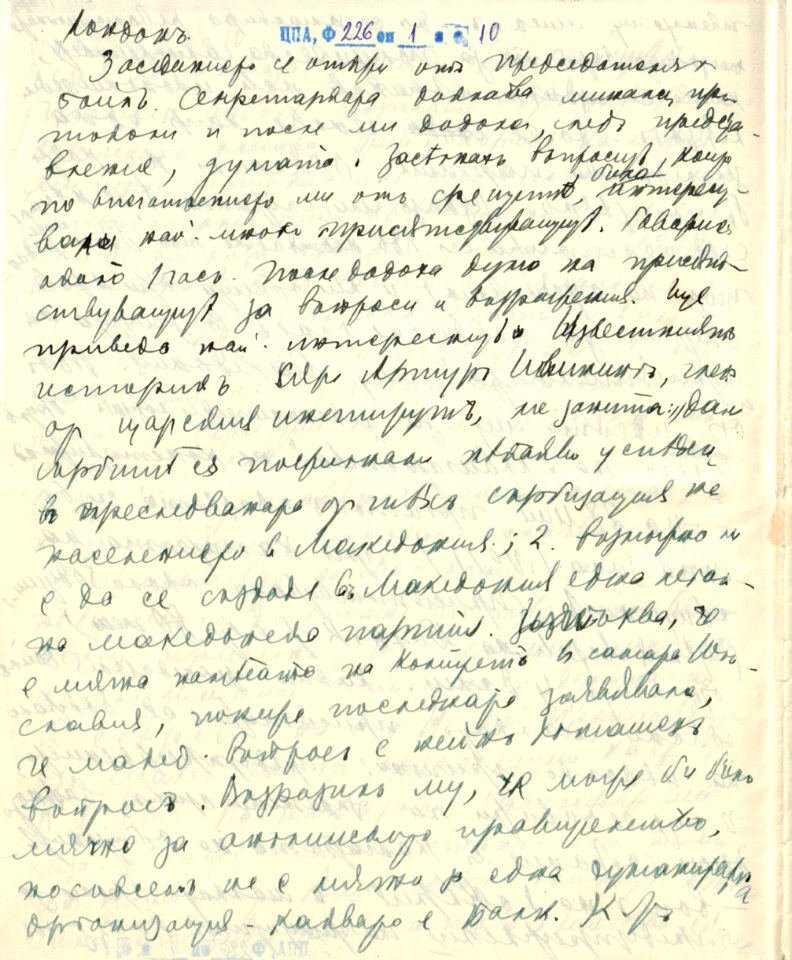 Лондонъ.
ЦПА, Ф 226 оп 1 а е 10
Заседанието се откри отъ председателя
Бойлъ. Секретарката докладва миналия про-
токолъ и после ми додоха, следъ представ-
ление, думата. Засегнахъ въпросите, които
по впечатлението ми отъ срещите, биха интересу-
вали най-много присътствующите. Говорих
около 1 часъ. После додоха дума на присът-
ствующите за въпроси и възражения. Ще
приведа най-интересните. Известния
историкъ Сиръ Артуръ, членъ
от царския институтъ, ме запита: дали
сърбите са постигнали някакви успехи
в преследваната от тяхъ сърбизация на
населението в Македония; 2. възможно ли
е да се създаде въ Македония една легал-
на македонска партия. Изтъква, че
е мяжна намесата на Конгреса в самата Юго-
славия, понеже последната заявявала,
че макед. въпросъ е нейнъ домашенъ
въпросъ. Возразихъ му, че може би било
мъчно за английското правителство,
но съвсемъ не е мъчно за една хуманитарна
организация - каквато е Балк. К-тъ